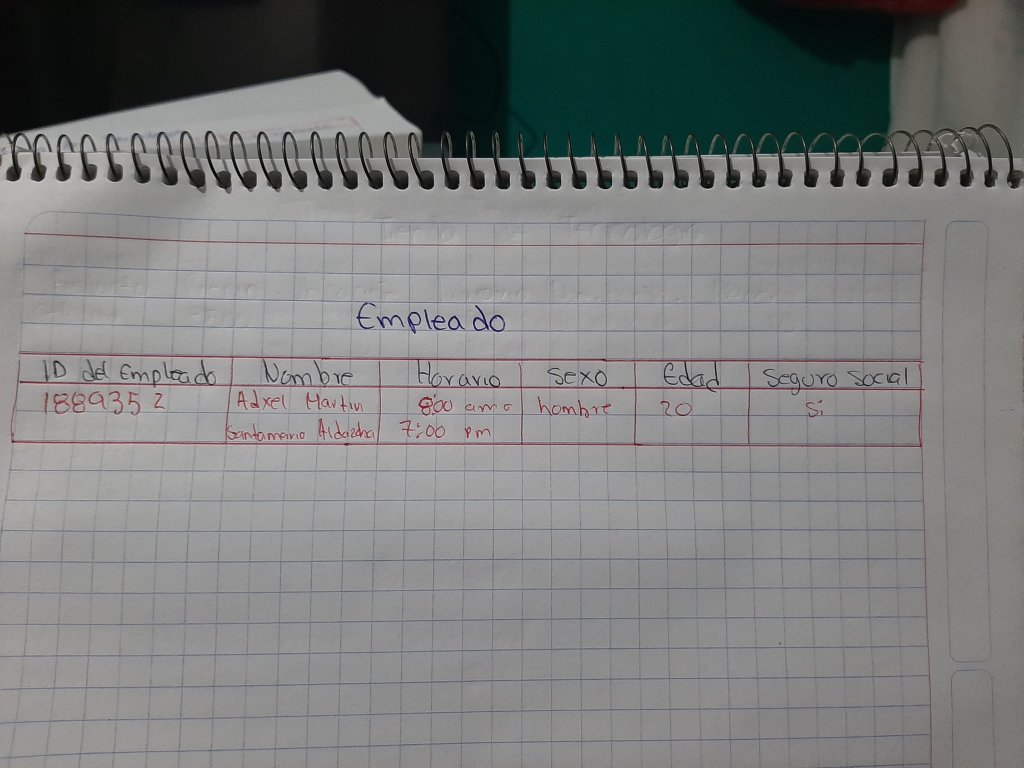 Empleado
ID del Empleado Nombre Horario sexo Edad seguro social
1889352 Adxel Martin 8:00 am o hombre 20 si
7:00 pm